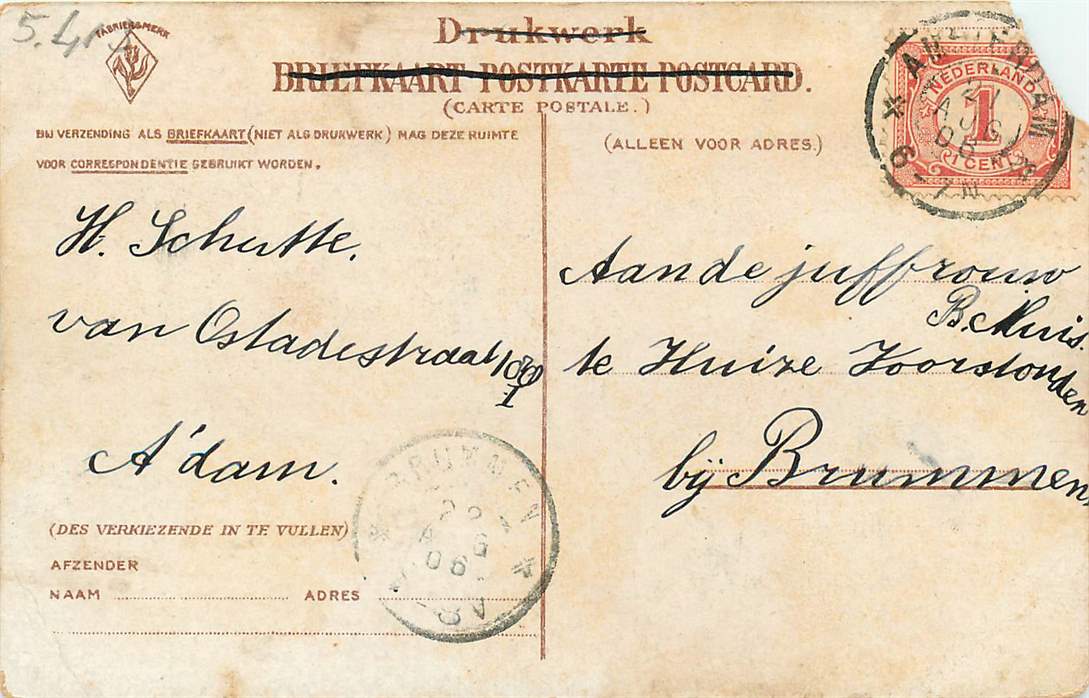 5.
FABRIEKSMERK
Drukwerk
BRIEFKAART POSTKARTE POSTCARD.
(CARTE POSTALE.)
BIJ VERZENDING ALS BRIEFKAART (NIET ALS DRUKWERK) MAG DEZE RUIMTE
VOOR CORRESPONDENTIE GEBRUIKT WORDEN.
(ALLEEN VOOR ADRES.)
AMSTERDAM
21
AUG
06
6-7N
NEDERLAND
1
CENT
H. Schutte.
van Ostadestraat
I
A'dam.
Aan de juffrouw
B. Muis.
te Huize Voorstonden
bij Brummen.
BRUMMEN
22
AUG
06
(DES VERKIEZENDE IN TE VULLEN)
AFZENDER
NAAM ADRES